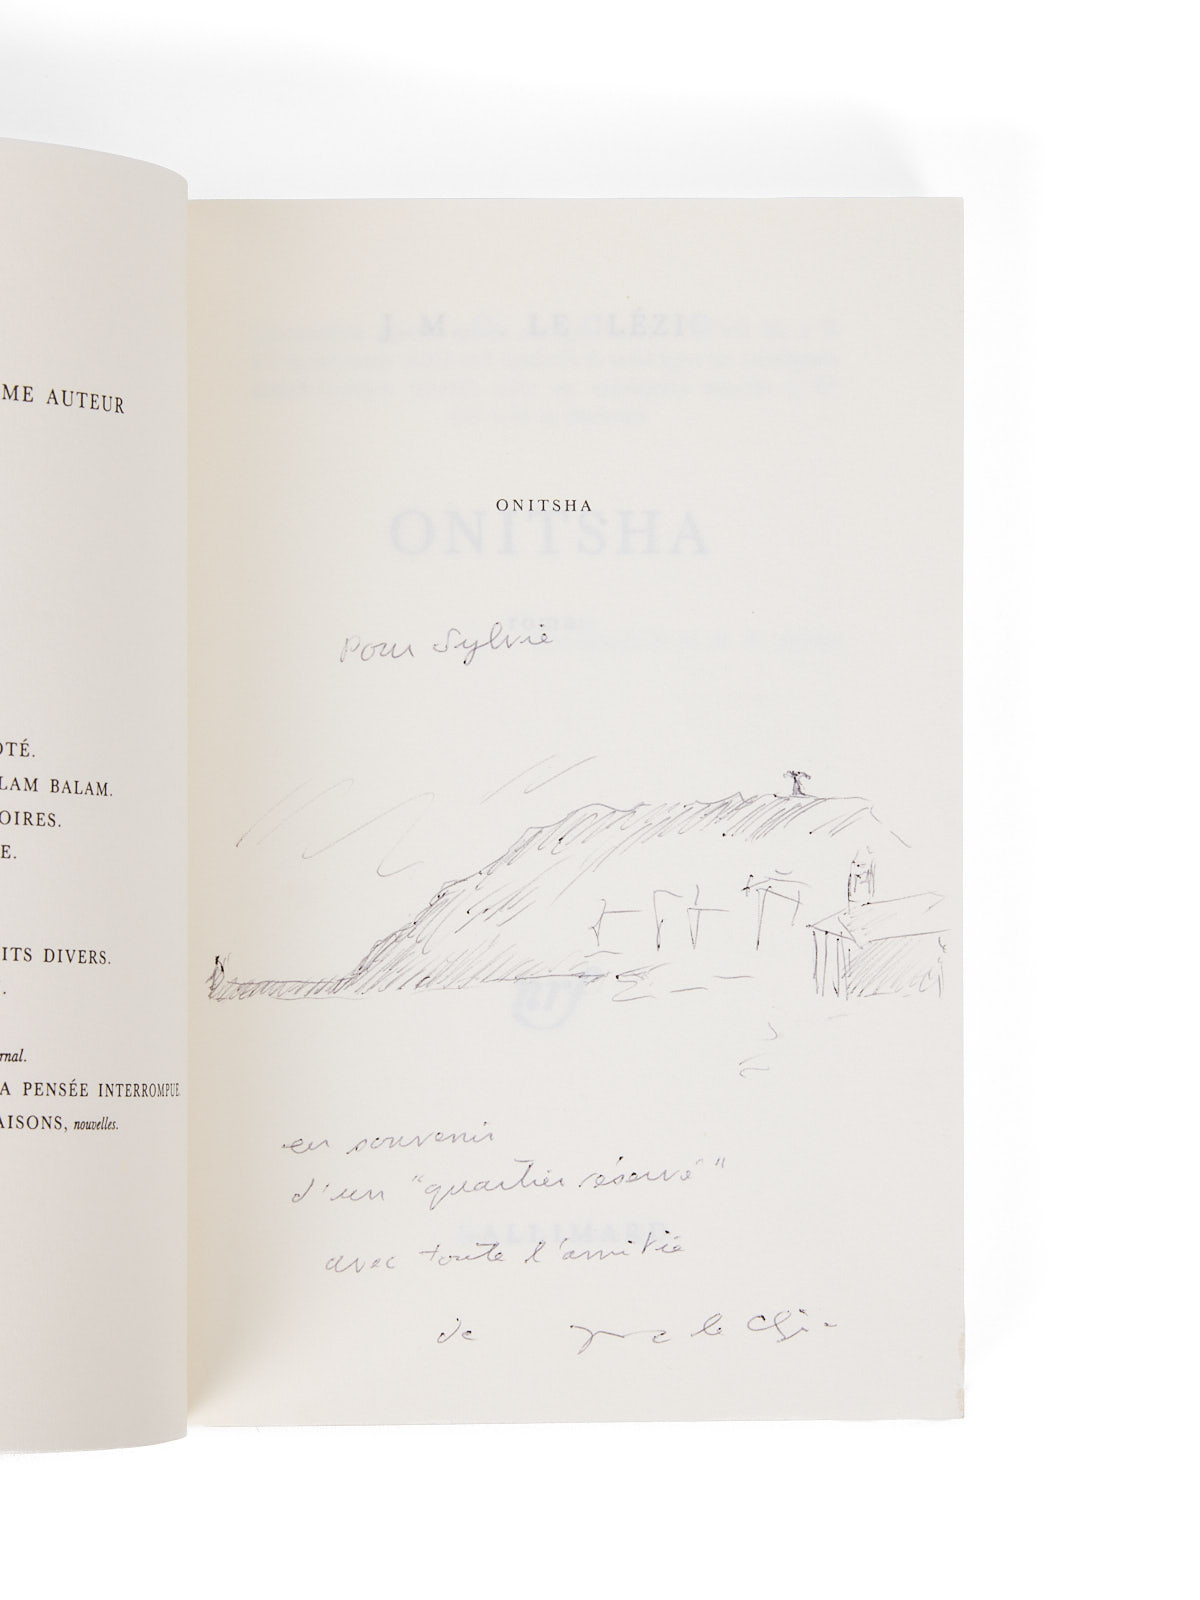 ME AUTEUR
OTÉ.
LAM BALAM.
OIRES.
E.
ITS DIVERS.
.
rnal.
A PENSÉE INTERROMPUE.
AISONS, nouvelles.
J. M. LE LÉZI
ONITSHA
ONITSHA
roman
Pour Sylvie
nrf
en souvenir
d'un "quartier réservé"
ALLIMARD
avec toute l'amitié
de